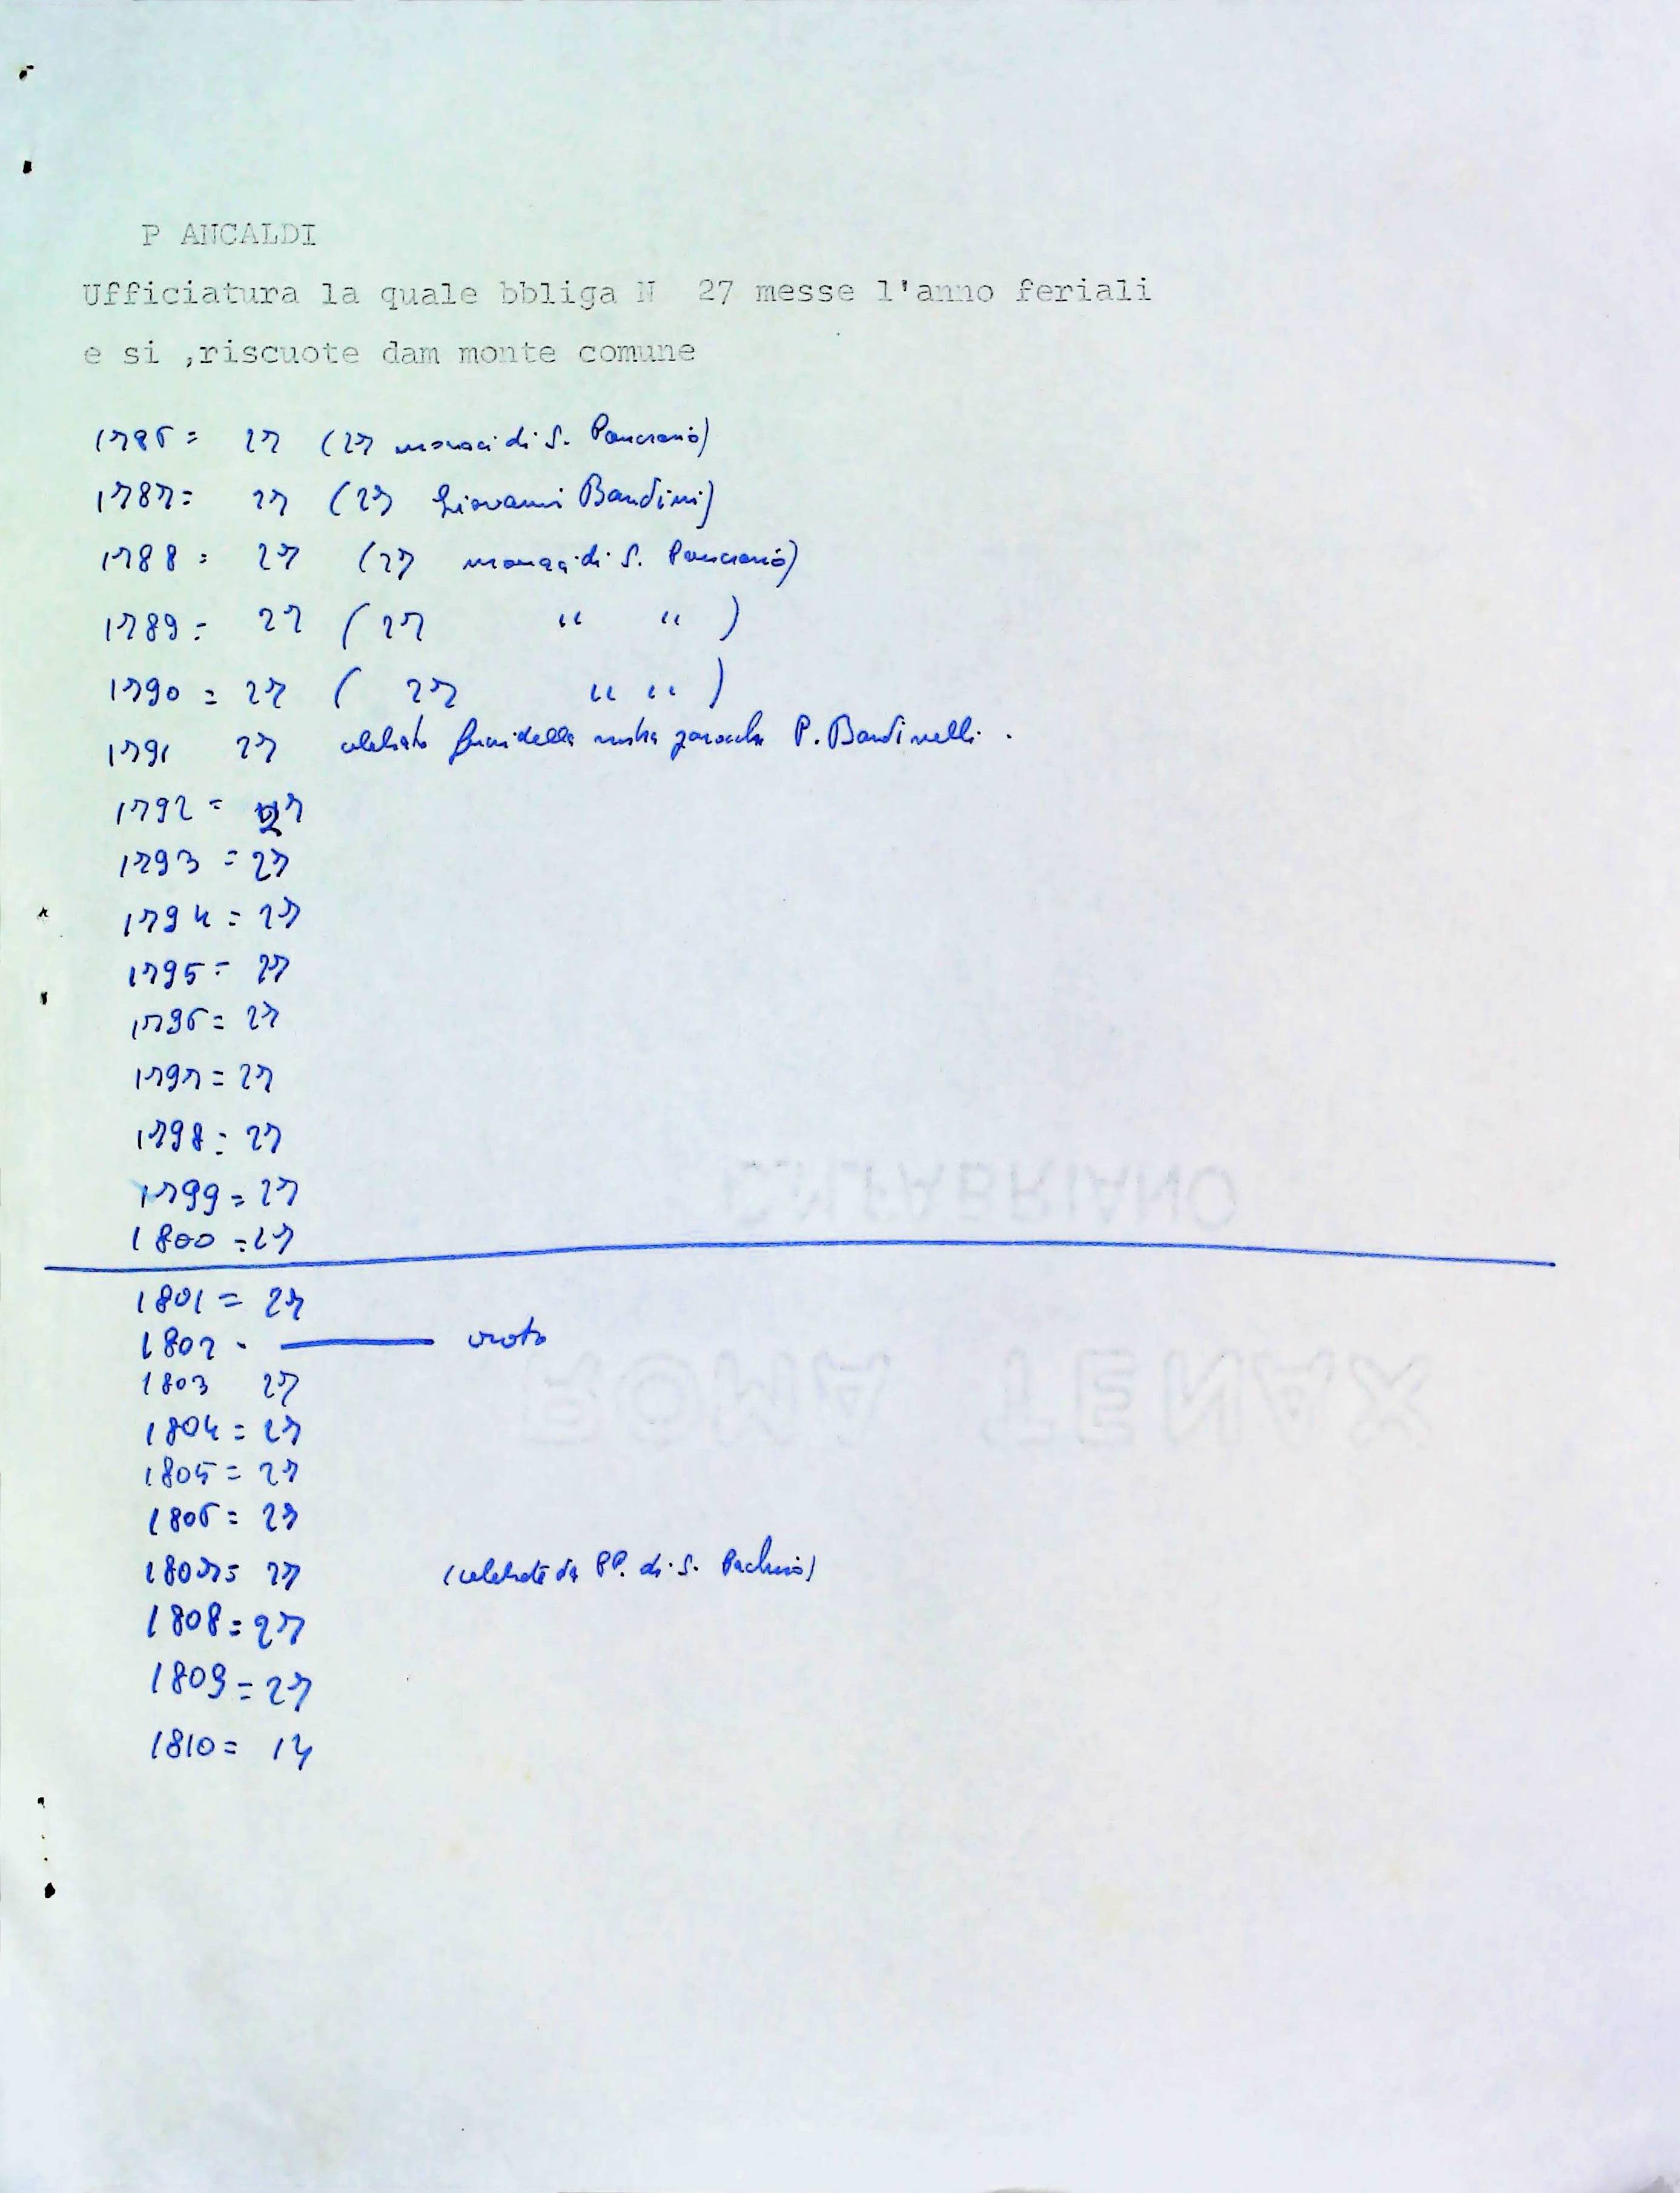 P ANCALDI
Ufficiatura la quale bbliga N 27 messe l'anno feriali
e si ,riscuote dam monte comune
1786 = 27 (27 monaci di S. Pancrazio)
1787 = 27 (27 Giovanni Bandini)
1788 = 27 (27 monaci di S. Pancrazio)
1789 = 27 (27 " " )
1790 = 27 ( 27 " " )
1791 27 celebrate fuori della nostra P. Bandinelli.
1792 = 27
1793 = 27
1794 = 27
1795 = 27
1796 = 27
1797 = 27
1798 = 27
1799 = 27
1800 = 27
1801 = 27
1802 - —— vuoto
1803 27
1804 = 27
1805 = 27
1806 = 27
1807 = 27 (celebrate da PP. di S.
1808 = 27
1809 = 27
1810 = 14
C.M.FABRIANO
ROMA TENAX